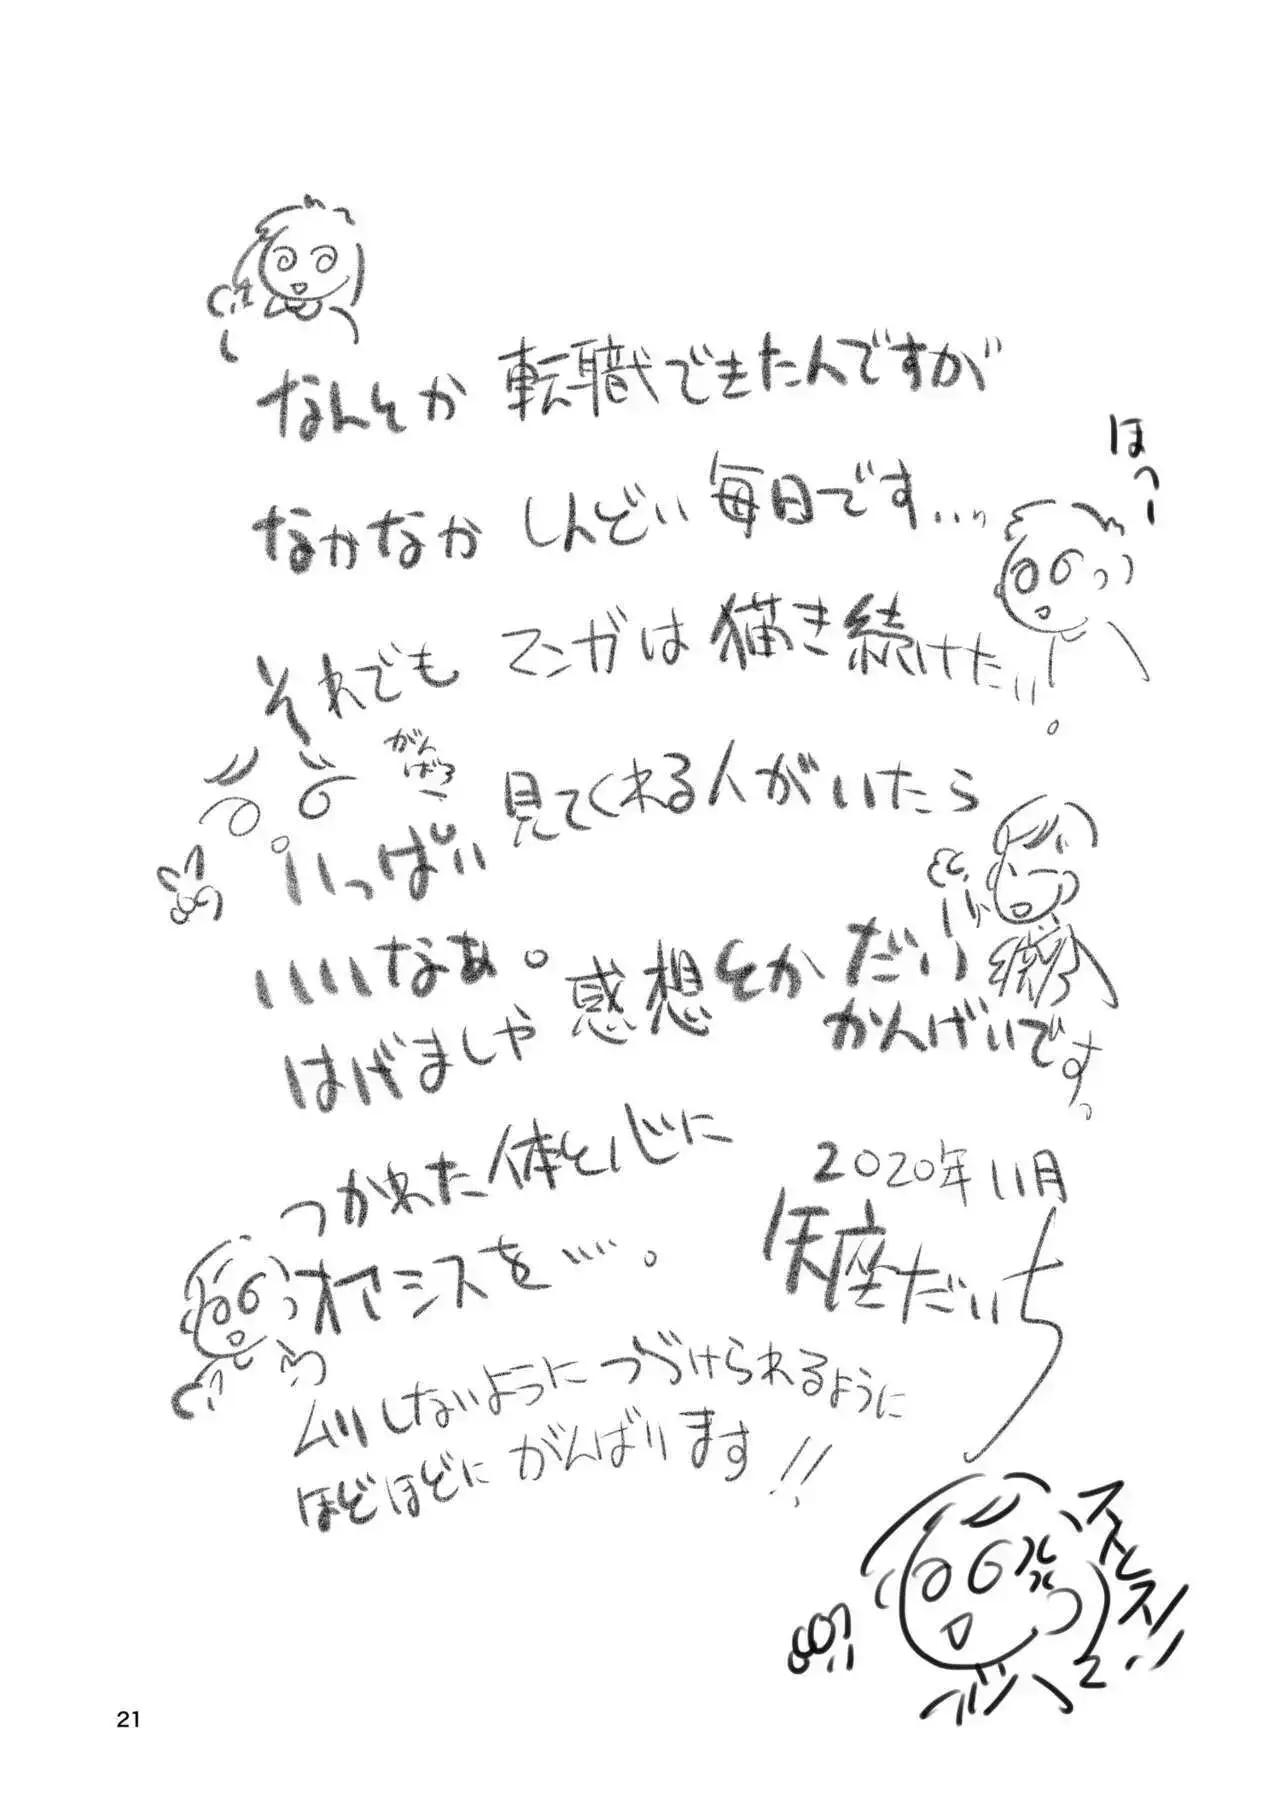 なんとか転職できたんですが
なかなかしんどい毎日です…
ほっー
それでもマンガは描き続けたい。
がん
ばろー
いっぱい見てくれる人がいたら
いいなぁ。
はげましや感想とかだい
かんげいです。
つかれた体と心に
オアシスを…。
2020年11月
矢座だいち
ムリしないようにつづけられるように
ほどほどにがんばります!!
21